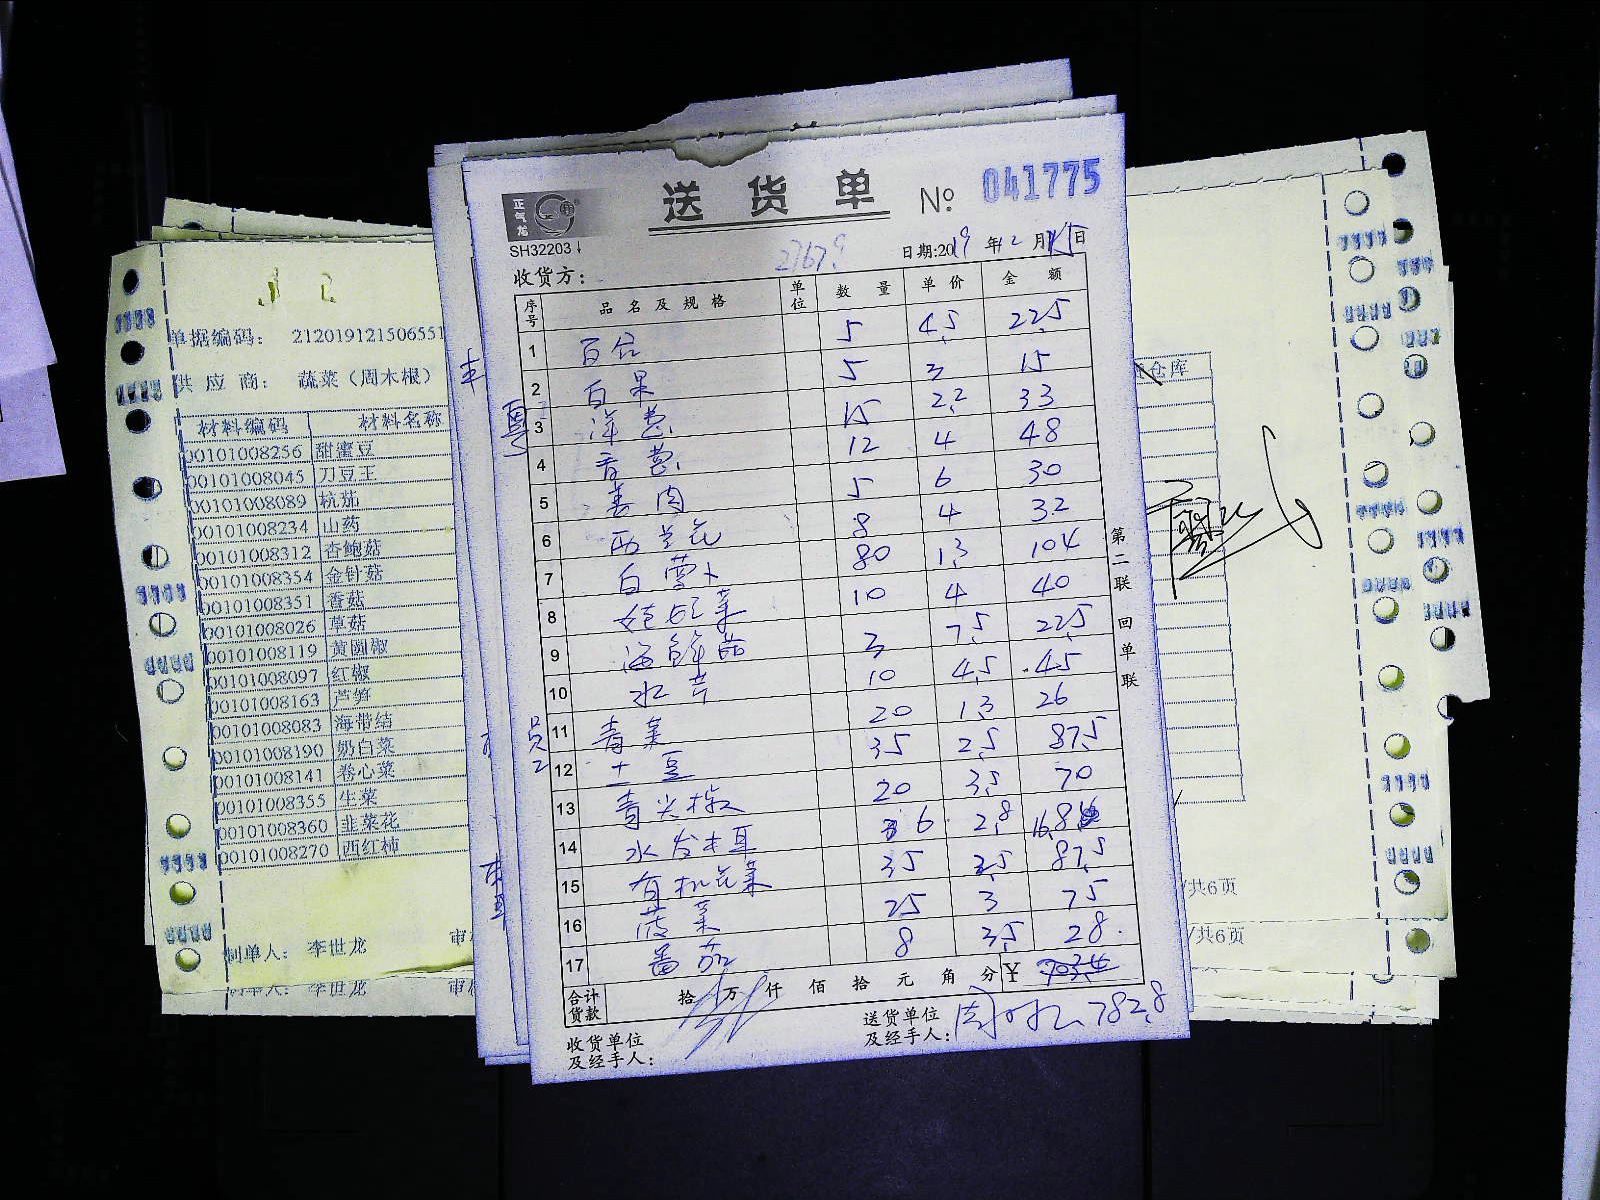 正气龙
送货单 № 041775
SH32203
日期:2019年12月15日
收货方:
序号 品名及规格 单位 数量 单价 金额
1 百合 5 4.5 22.5
2 百果 5 3 15
3 洋葱 15 2.2 33
4 香葱 12 4 48
5 姜肉 5 6 30
6 西兰花 8 4 32
7 白萝卜 80 1.3 104
8 娃娃菜 10 4 40
9 海鲜菇 3 7.5 22.5
10 水芹 10 4.5 45
11 青菜 20 1.3 26
12 土豆 35 2.5 87.5
13 青尖椒 20 3.5 70
14 水发木耳 6 2.8 16.8
15 有机花菜 35 2.5 87.5
16 菠菜 25 3 75
17 番茄 8 3.5 28
合计货款 拾 万 仟 佰 拾 元 角 分 ¥
782.8
收货单位及经手人:
送货单位及经手人:
第二联 回单联
单据编码: 212019121506551
供应商: 蔬菜(周木根)
材料编码 材料名称
00101008256 甜蜜豆
00101008045 刀豆王
00101008089 杭茄
00101008234 山药
00101008312 杏鲍菇
00101008354 金针菇
00101008351 香菇
00101008026 草菇
00101008119 黄圆椒
00101008097 红椒
00101008163 芦笋
00101008083 海带结
00101008190 奶白菜
00101008141 卷心菜
00101008355 生菜
00101008360 韭菜花
00101008270 西红柿
制单人: 李世龙 审
制单人: 李世龙 审
仓库
/共6页
/共6页